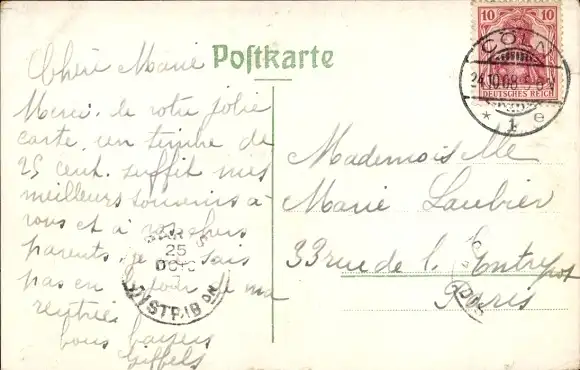 Postkarte
10 10
DEUTSCHES REICH
CÖLN
24.10.08
* 1 e
Chère Marie
Merci de votre jolie
carte un timbre de
25 cent. suffit mes
meilleurs souvenirs à
vous et à vos chers
parents. je ne sais
pas en le jour de ma
rentrée
bons baisers
Mademoiselle
Marie Laubier
33 rue de l'Entrepot
Paris
PARIS
25
OCT
DISTRIBON